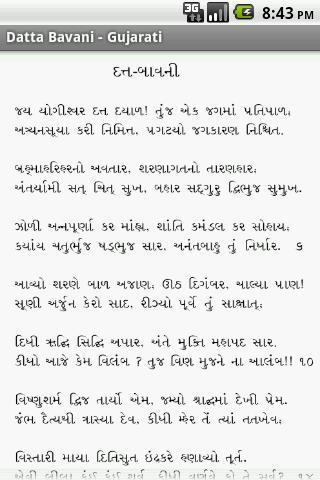 3G
8:43 PM
Datta Bavani - Gujarati
દત્ત-બાવની
જય યોગીશ્વર દત્ત દયાળ! તુંજ એક જગમાં પ્રતિપાળ;
અત્ર્યનસૂયા કરી નિમિત્ત, પગટયો જગકારણ નિશ્ચિત.
બ્રહ્માહરિહરનો અવતાર, શરણાગતનો તારણહાર;
અંતર્યામી સત્ ચિત્ સુખ, બહાર સદ્ગુરુ દ્વિભુજ સુમુખ.
ઝોળી અન્નપૂર્ણા કર માંહ્ય, શાંતિ કમંડલ કર સોહાય;
કયાંય ચતુર્ભુજ ષડ્ભુજ સાર, અનંતબાહુ તું નિર્ધાર. ૬
આવ્યો શરણે બાળ અજાણ; ઊઠ દિગંબર, ચાલ્યા પાણ!
સૂણી અર્જુન કેરો સાદ, રીઝ્યો પૂર્વે તું સાક્ષાત્;
દિધી ઋદ્ધિ સિદ્ધિ અપાર, અંતે મુક્તિ મહાપદ સાર.
કીધો આજે કેમ વિલંબ ? તુજ વિણ મુજને ના આલંબ!! ૧૦
વિષ્ણુશર્મ દ્વિજ તાર્યો એમ, જમ્યો શ્રાદ્ધમાં દેખી પ્રેમ.
જંભ દૈત્યથી ત્રાસ્યા દેવ, કીધી મ્હેર તેં ત્યાં તતખેવ;
વિસ્તારી માયા દિતિસુત ઇંદ્રકરે હણાવ્યો તૂર્ત.
એવી લીલા કંઈ કંઈ શર્વ, કીધી વર્ણવે કો તે સર્વ? ૧૪